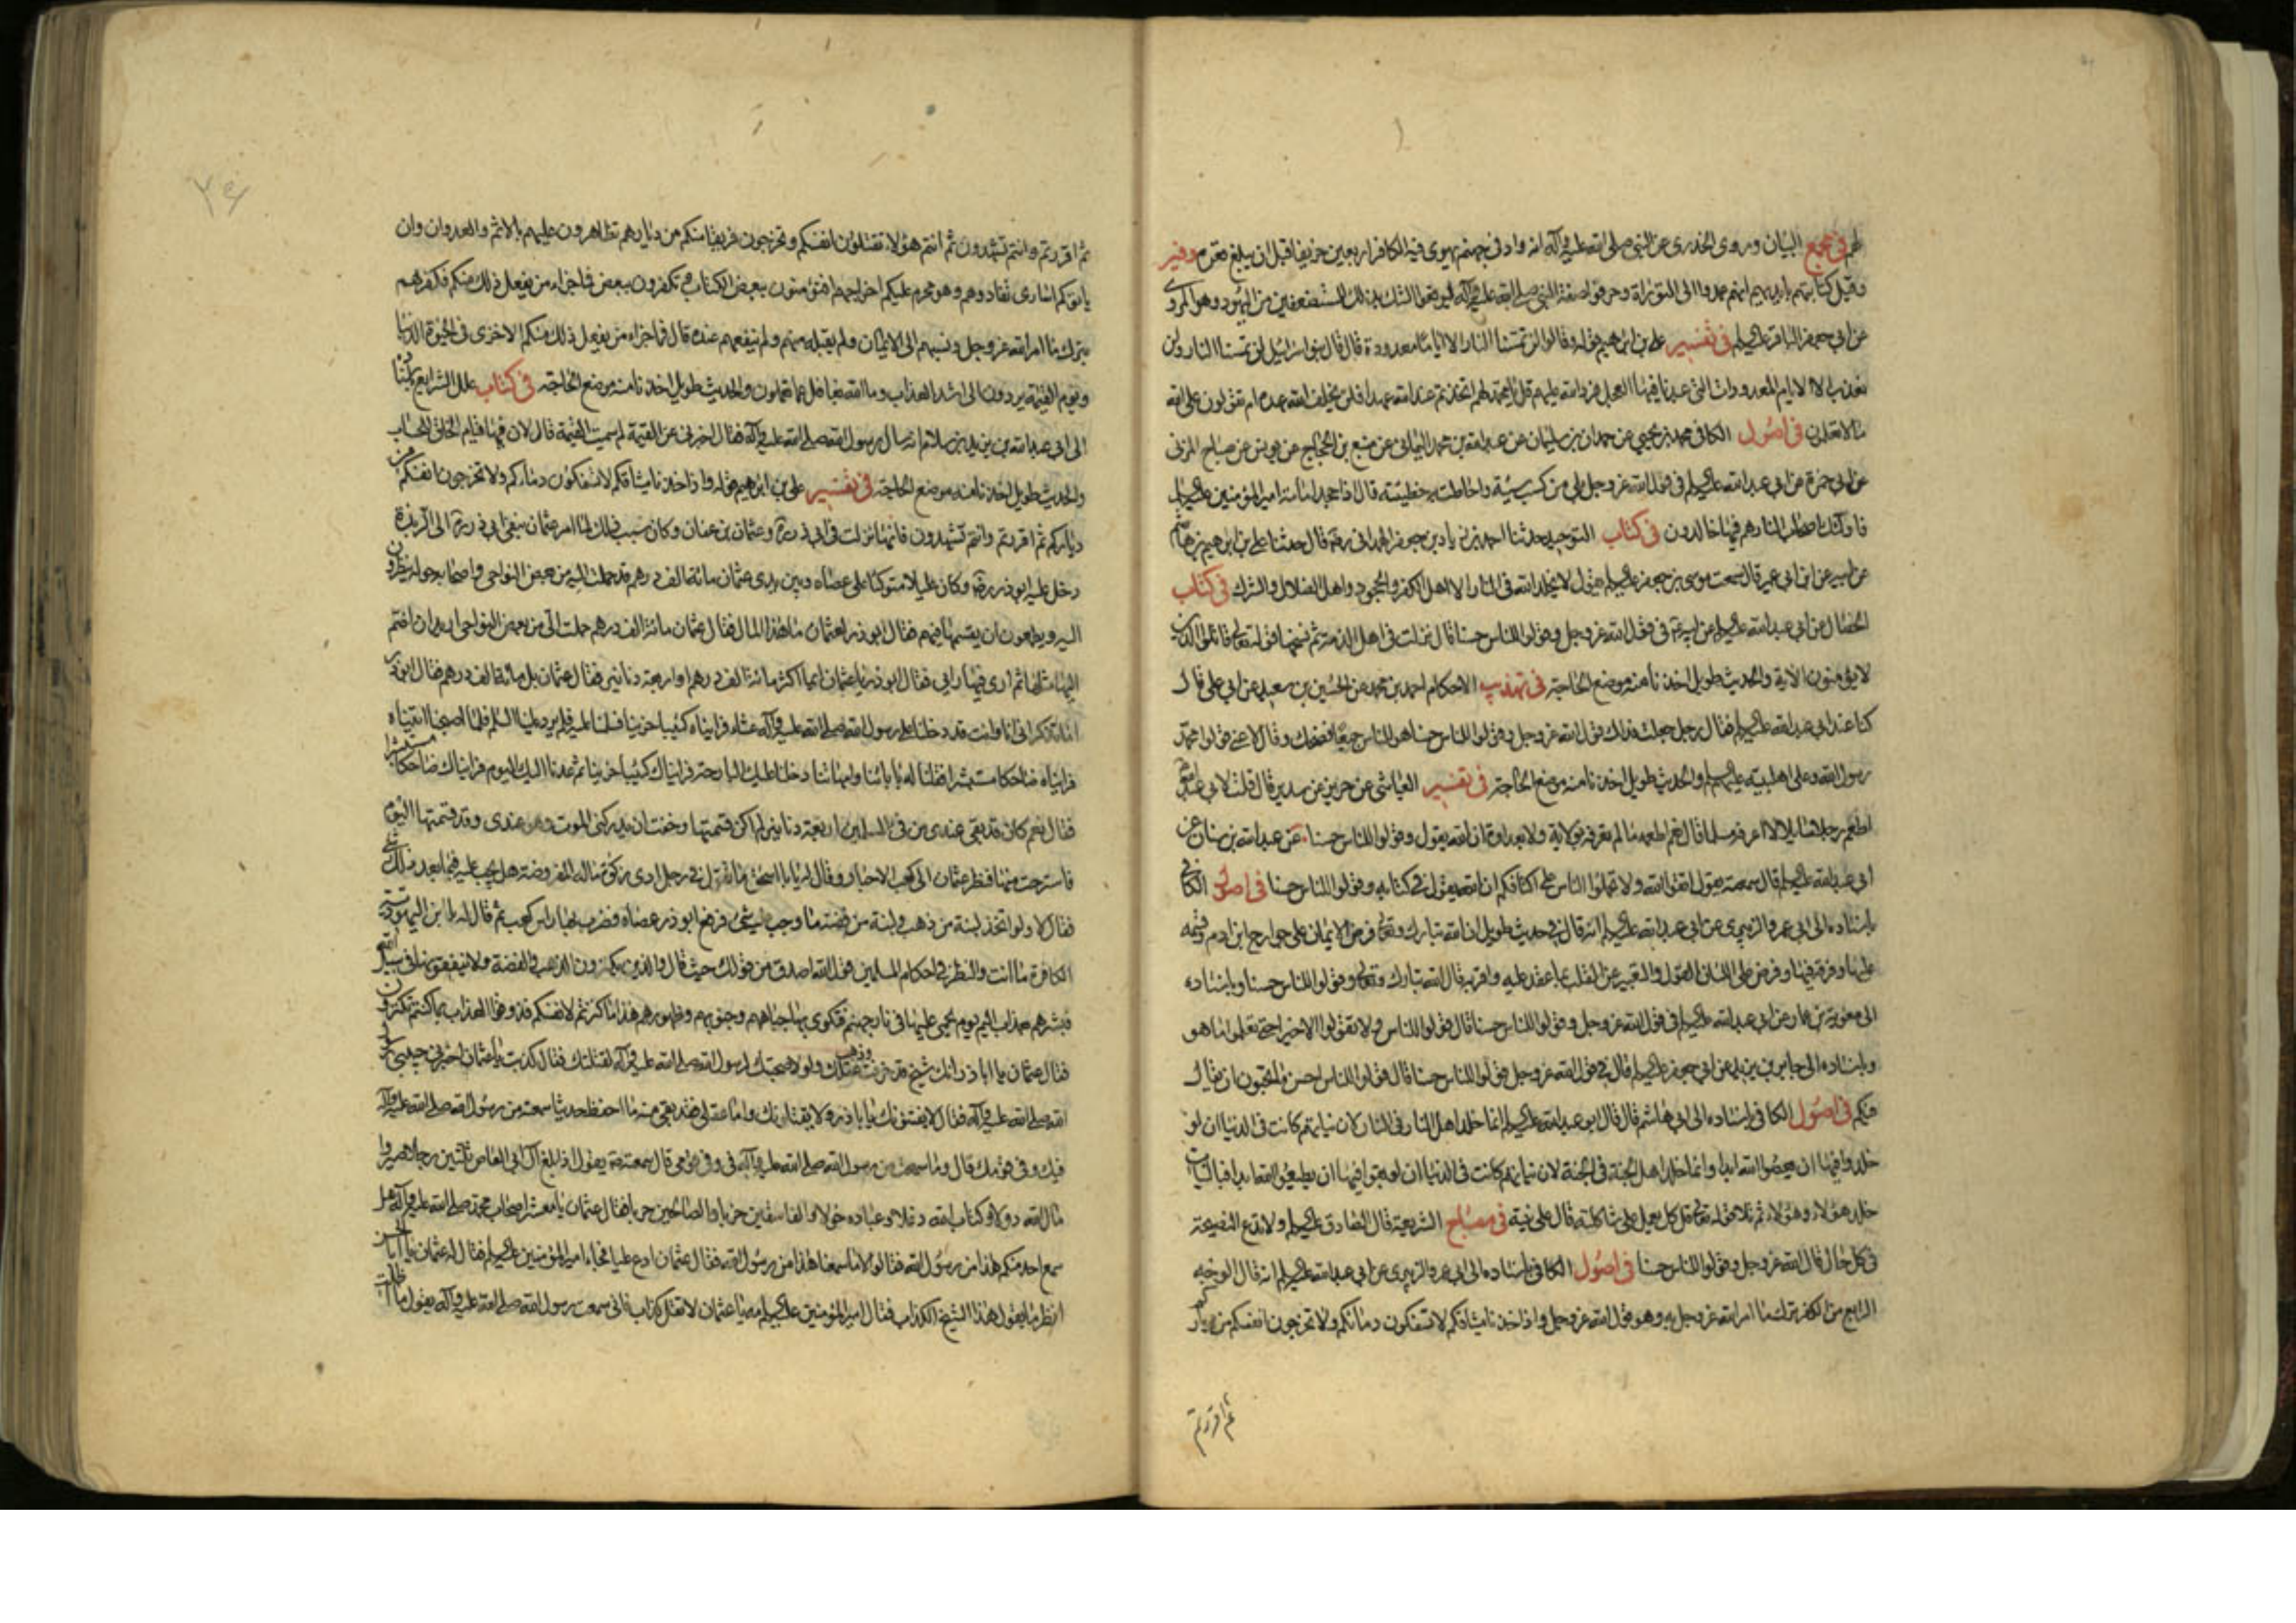 لهم في مجمع البيان وروى الخدري عن النبي صلى الله عليه وآله انه واد في جهنم يهوى فيه الكافر اربعين خريفا قبل ان يبلغ قعره وفيه
وقيل كتابتهم بايديهم انهم عمدوا الى التوراة وحرفوا صفة النبي صلى الله عليه وآله ليوقعوا الشك بذلك للمستضعفين من اليهود وهو المروى
عن ابي جعفر الباقر عليه السلم في تفسير علي بن ابراهيم قوله وقالوا لن تمسنا النار الا اياما معدودة قال قال بنو اسرائيل لن تمسنا النار ولن
نعذب الا الايام المعدودات التي عبدنا فيها العجل فرد الله عليهم قل يا محمد لهم اتخذتم عند الله عهدا فلن يخلف الله عهده ام تقولون على الله
ما لا تعلمون في اصول الكافي محمد بن يحيى عن حمدان بن سليمان عن عبد الله بن محمد اليماني عن منيع بن الحجاج عن يونس عن صباح المزني
عن ابي حمزة عن ابي عبد الله عليه السلم في قول الله عز وجل بلى من كسب سيئة واحاطت به خطيئته قال اذا جحد امامة امير المؤمنين عليه السلم
فاولئك اصحاب النار هم فيها خالدون في كتاب التوحيد حدثنا احمد بن زياد بن جعفر الهمداني ره قال حدثنا علي بن ابراهيم بن هاشم
عن ابيه عن ابن ابي عمير قال سمعت موسى بن جعفر عليه السلم يقول لا يخلد الله في النار الا اهل الكفر والجحود واهل الضلال والشرك في كتاب
الخصال عن ابي عبد الله عليه السلم عن ابيه في قول الله عز وجل وقولوا للناس حسنا قال نزلت في اهل الذمة ثم نسخها قوله تعالى قاتلوا الذين
لا يؤمنون الآية والحديث طويل اخذنا منه موضع الحاجة في تهذيب الاحكام احمد بن محمد عن الحسين بن سعيد عن ابي علي قال
كنا عند ابي عبد الله عليه السلم فقال رجل جعلت فداك قول الله عز وجل وقولوا للناس حسنا هو للناس جميعا فضحك وقال لا عنى قولوا محمد
رسول الله وعلى اهل بيته عليهم السلم والحديث طويل اخذنا منه موضع الحاجة في تفسير العياشي عن حريز عن سدير قال قلت لابي عبد الله
اطعم رجلا سائلا لا اعرفه مسلما قال نعم اطعمه ما لم تعرفه بولاية ولا بعداوة ان الله يقول وقولوا للناس حسنا عن عبد الله بن سنان عن
ابي عبد الله عليه السلم قال سمعته يقول اتقوا الله ولا تحملوا الناس على اكتافكم ان الله يقول في كتابه وقولوا للناس حسنا في اصول الكافي
باسناده الى ابي عمرو الزبيري عن ابي عبد الله عليه السلم انه قال في حديث طويل ان الله تبارك وتعالى فرض الايمان على جوارح ابن ادم وقسمه
عليها وفرقه فيها وفرض على اللسان القول والتعبير عن القلب بما عقد عليه واقر به قال الله تبارك وتعالى وقولوا للناس حسنا وباسناده
الى معوية بن عمار عن ابي عبد الله عليه السلم في قول الله عز وجل وقولوا للناس حسنا قال قولوا للناس ولا تقولوا الا خيرا حتى تعلموا ما هو
وباسناده الى جابر بن يزيد عن ابي جعفر عليه السلم قال في قول الله عز وجل وقولوا للناس حسنا قال قولوا للناس احسن ما تحبون ان يقال
فيكم في اصول الكافي باسناده الى ابي هاشم قال قال ابو عبد الله عليه السلم انما خلد اهل النار في النار لان نياتهم كانت في الدنيا ان لو
خلدوا فيها ان يعصوا الله ابدا وانما خلد اهل الجنة في الجنة لان نياتهم كانت في الدنيا ان لو بقوا فيها ان يطيعوا الله ابدا فبالنيات
خلد هؤلاء وهؤلاء ثم تلا قوله تعالى قل كل يعمل على شاكلته قال على نيته في مصباح الشريعة قال الصادق عليه السلم ولا تدع النصيحة
في كل حال قال الله عز وجل وقولوا للناس حسنا في اصول الكافي باسناده الى ابي عمرو الزبيري عن ابي عبد الله عليه السلم انه قال الوجه
الرابع من الكفر ترك ما امر الله عز وجل به وهو قول الله عز وجل واذ اخذنا ميثاقكم لا تسفكون دمائكم ولا تخرجون انفسكم من دياركم
ثم اقررتم
ثم اقررتم وانتم تشهدون ثم انتم هؤلاء تقتلون انفسكم وتخرجون فريقا منكم من ديارهم تظاهرون عليهم بالاثم والعدوان وان
ياتوكم اسارى تفادوهم وهو محرم عليكم اخراجهم افتؤمنون ببعض الكتاب وتكفرون ببعض فما جزاء من يفعل ذلك منكم فكفرهم
بترك ما امر الله عز وجل ونسبهم الى الايمان ولم يقبله منهم ولم ينفعهم عنده قال فما جزاء من يفعل ذلك منكم الا خزى في الحيوة الدنيا
ويوم القيمة يردون الى اشد العذاب وما الله بغافل عما تعملون والحديث طويل اخذنا منه موضع الحاجة في كتاب علل الشرايع باسنادنا
الى ابي عبد الله بن يزيد بن سلام انه سال رسول الله صلى الله عليه وآله فقال اخبرني عن القيمة لم سميت القيمة قال لان فيها قيام الخلق للحساب
والحديث طويل اخذنا منه موضع الحاجة في تفسير علي بن ابراهيم قوله واذ اخذنا ميثاقكم لا تسفكون دمائكم ولا تخرجون انفسكم من
دياركم ثم اقررتم وانتم تشهدون فانها نزلت في ابي ذر ره وعثمان بن عفان وكان سبب ذلك لما امر عثمان بنفي ابي ذر ره الى الربذة
دخل عليه ابو ذر ره وكان عليلا متوكئا على عصاه وبين يدي عثمان مائة الف درهم قد حملت اليه من بعض النواحي واصحابه حوله ينظرون
اليه ويطمعون ان يقسمها فيهم فقال ابو ذر لعثمان ما هذا المال فقال عثمان مائة الف درهم حملت الي من بعض النواحي اريد ان اضم
اليها مثلها ثم ارى فيها رايي فقال ابو ذر يا عثمان ايما اكثر مائة الف درهم او اربعة دنانير فقال عثمان بل مائة الف درهم فقال ابو ذر
اما تذكر اني انا وانت قد دخلنا على رسول الله صلى الله عليه وآله عشاء فرايناه كئيبا حزينا فسلمنا عليه فلم يرد علينا السلم فلما اصبحنا اتيناه
فرايناه ضاحكا مستبشرا فقلنا له بابائنا وامهاتنا دخلنا عليك البارحة فرايناك كئيبا حزينا ثم عدنا اليك اليوم فرايناك ضاحكا مستبشرا
فقال نعم كان قد بقي عندي من فيء المسلمين اربعة دنانير لم اكن قسمتها وخفت ان يدركني الموت وهي عندي وقد قسمتها اليوم
فاسترحت منها فنظر عثمان الى كعب الاحبار وقال له يا ابا اسحق ما تقول في رجل ادى زكوة ماله المفروضة هل يجب عليه فيما بعد ذلك شئ
فقال لا ولو اتخذ لبنة من ذهب ولبنة من فضة ما وجب عليه شئ فرفع ابو ذر عصاه فضرب بها راس كعب ثم قال له يا ابن اليهودية
الكافرة ما انت والنظر في احكام المسلمين قول الله اصدق من قولك حيث قال والذين يكنزون الذهب والفضة ولا ينفقونها في سبيل الله
فبشرهم بعذاب اليم يوم يحمى عليها في نار جهنم فتكوى بها جباههم وجنوبهم وظهورهم هذا ما كنزتم لانفسكم فذوقوا العذاب بما كنتم تكنزون
فقال عثمان يا ابا ذر انك شيخ قد خرفت وذهب عقلك ولولا صحبتك لرسول الله صلى الله عليه وآله لقتلتك فقال كذبت يا عثمان اخبرني حبيبي رسول
الله صلى الله عليه وآله فقال لا يفتنونك يا با ذر ولا يقتلونك واما عقلي فقد بقي منه ما احفظ حديثا سمعته من رسول الله صلى الله عليه وآله
فيك وفي قومك قال وما سمعت من رسول الله صلى الله عليه وآله في وفي قومي قال سمعته يقول اذا بلغ آل ابي العاص ثلثين رجلا صيروا
مال الله دولا وكتاب الله دغلا وعباده خولا والفاسقين حزبا والصالحين حربا فقال عثمان يا معشر اصحاب محمد صلى الله عليه وآله هل
سمع احد منكم هذا من رسول الله فقالوا لا ما سمعنا هذا من رسول الله فقال عثمان ادع عليا فجاء امير المؤمنين عليه السلم فقال له عثمان يا ابا الحسن
انظر ما يقول هذا الشيخ الكذاب فقال امير المؤمنين عليه السلم مه يا عثمان لا تقل كذاب فاني سمعت رسول الله صلى الله عليه وآله يقول ما اظلت